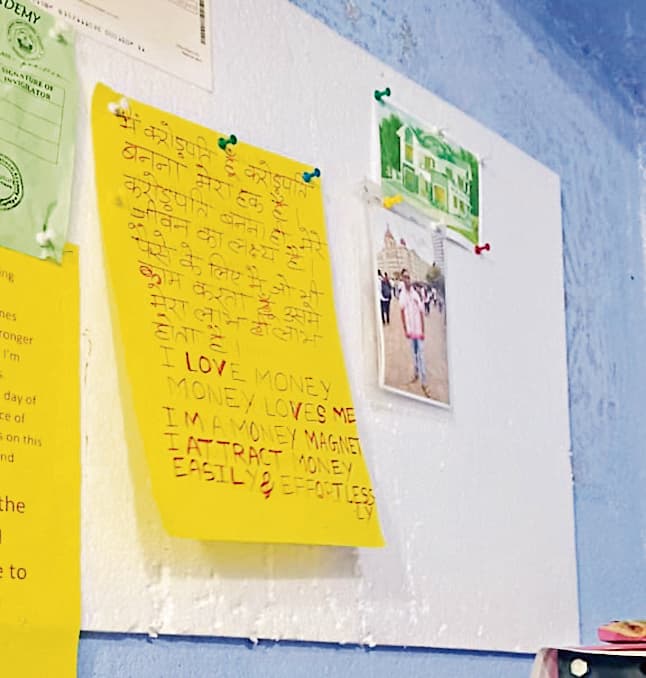 DEMY
SIGNATURE OF
INVIGILATOR
मैं करोड़पति हूँ करोड़पति
बनना मेरा हक है
करोड़पति बनना ही मेरे
जीवन का लक्ष्य है
पैसे के लिए मैं जो भी
काम करता हूँ उसमे
मेरा लाभ ही लाभ
होता है।
I LOVE MONEY
MONEY LOVES ME
I M A MONEY MAGNET
I ATTRACT MONEY
EASILY & EFFORTLESS
LY
ing
nes
ronger
I'm
s.
day of
ce of
s on this
nd
the
e to